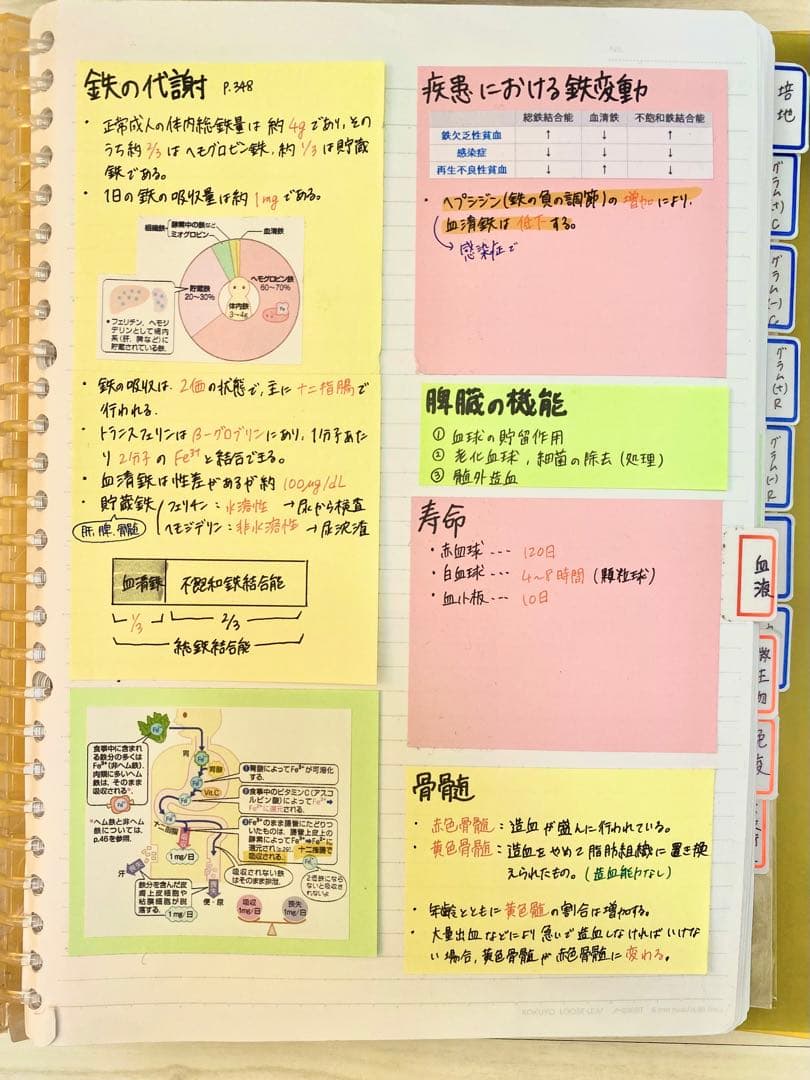 鉄の代謝 P.348
・正常成人の体内総鉄量は約4gであり、その
うち約2/3はヘモグロビン鉄、約1/3は貯蔵
鉄である。
・1日の鉄の吸収量は約1mgである。
組織鉄
酵素中の鉄など
ミオグロビン
血清鉄
貯蔵鉄
20〜30%
ヘモグロビン鉄
60〜70%
体内鉄
3〜4g
Fe
●フェリチン、ヘモジ
デリンとして細内
系(肝、脾など)に
貯蔵されている鉄.
・鉄の吸収は、2価の状態で、主に十二指腸で
行われる.
・トランスフェリンはβ-グロブリンにあり、1分子あた
り2分子のFe³⁺と結合できる。
・血清鉄は性差があるが約100μg/dL
・貯蔵鉄
肝,脾,骨髄
フェリチン:水溶性→尿から検査
ヘモジデリン:非水溶性→尿沈渣
血清鉄 不飽和鉄結合能
1/3 2/3
総鉄結合能
食事中に含まれ
る鉄分の多くは
Fe³⁺(非ヘム鉄).
肉類に多いヘム
鉄は、そのまま
吸収される*.
*ヘム鉄と非ヘム
鉄については、
p.46を参照.
胃
胃酸
Vit.C
十二指腸
❶胃酸によってFe³⁺が可溶化
する.
❷食事中のビタミンC(アスコ
ルビン酸)によってFe³⁺➡
Fe²⁺に還元される.
❸Fe³⁺のまま腸管にたどりつ
いたものは、腸管上皮上の
酵素によってFe³⁺➡Fe²⁺に
十二指腸で
吸収される.
吸収
1mg/日
吸収されない鉄
はそのまま排泄.
2価鉄にな
らないと吸収さ
れないよ
汗
鉄分を含んだ皮
膚上皮細胞や
粘膜細胞が脱
落する.
1mg/日
便・尿
吸収
1mg/日
損失
1mg/日
疾患における鉄変動
総鉄結合能 血清鉄 不飽和鉄結合能
鉄欠乏性貧血 ↑ ↓ ↑
感染症 ↓ ↓ ↓
再生不良性貧血 ↓ ↑ ↓
・ヘプシジン(鉄の負の調節)の増加により、
血清鉄は低下する。
→感染症で
脾臓の機能
① 血球の貯留作用
② 老化血球、細菌の除去(処理)
③ 髄外造血
寿命
・赤血球--- 120日
・白血球--- 4〜8時間(顆粒球)
・血小板--- 10日
骨髄
・赤色骨髄:造血が盛んに行われている。
・黄色骨髄:造血をやめて脂肪組織に置き換
えられたもの。(造血能力なし)
・年齢とともに黄色髄の割合は増加する。
・大量出血などにより急いで造血しなければいけ
ない場合、黄色骨髄が赤色骨髄に変わる。
培地
グラム(+)C
グラム(-)C
グラム(+)R
グラム(-)R
血液
微生物
免疫